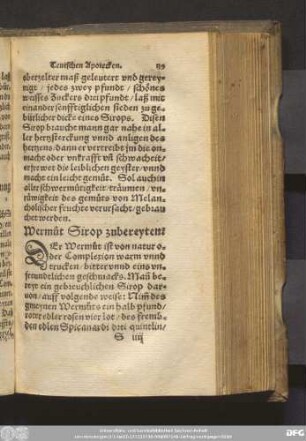 Teutschen Apotecken.
oberzelter maß geleutert vnd gerey-
nigt / jedes zwey pfundt / schönes
weisses Zuckers drei pfundt / laß mit
einander senfftiglichen sieden zu ge-
bürlicher dicke eines Sirops. Disen
Sirop braucht mann gar nahe in al-
ler hertzsterckung vnnd anligen des
hertzens / dann er vertreibt jm die on-
macht oder vnkrafft vñ schwacheit /
erfrewet die leiblichen geyster / vnnd
macht ein leicht gemüt. Sol auch in
aller schwermütigkeit / träumen / vn-
rüwigkeit des gemüts von Melan-
cholischer feuchte verursacht / gebrau
chet werden.
Wermüt Sirop zubereyten
DEr Wermüt ist von natur o-
der Complexion warm vnnd
trucken / bitter vnnd eins vn-
freundtlichen geschmacks. Mañ be-
reyt ein gebreuchlichen Sirop dar-
von / auff volgende weise: Nim̃ des
gemeynen Wermüts ein halb pfund /
roter edler rosen vier lot / des fremb-
den edlen Spicanardi drei quintlin /
S iiij